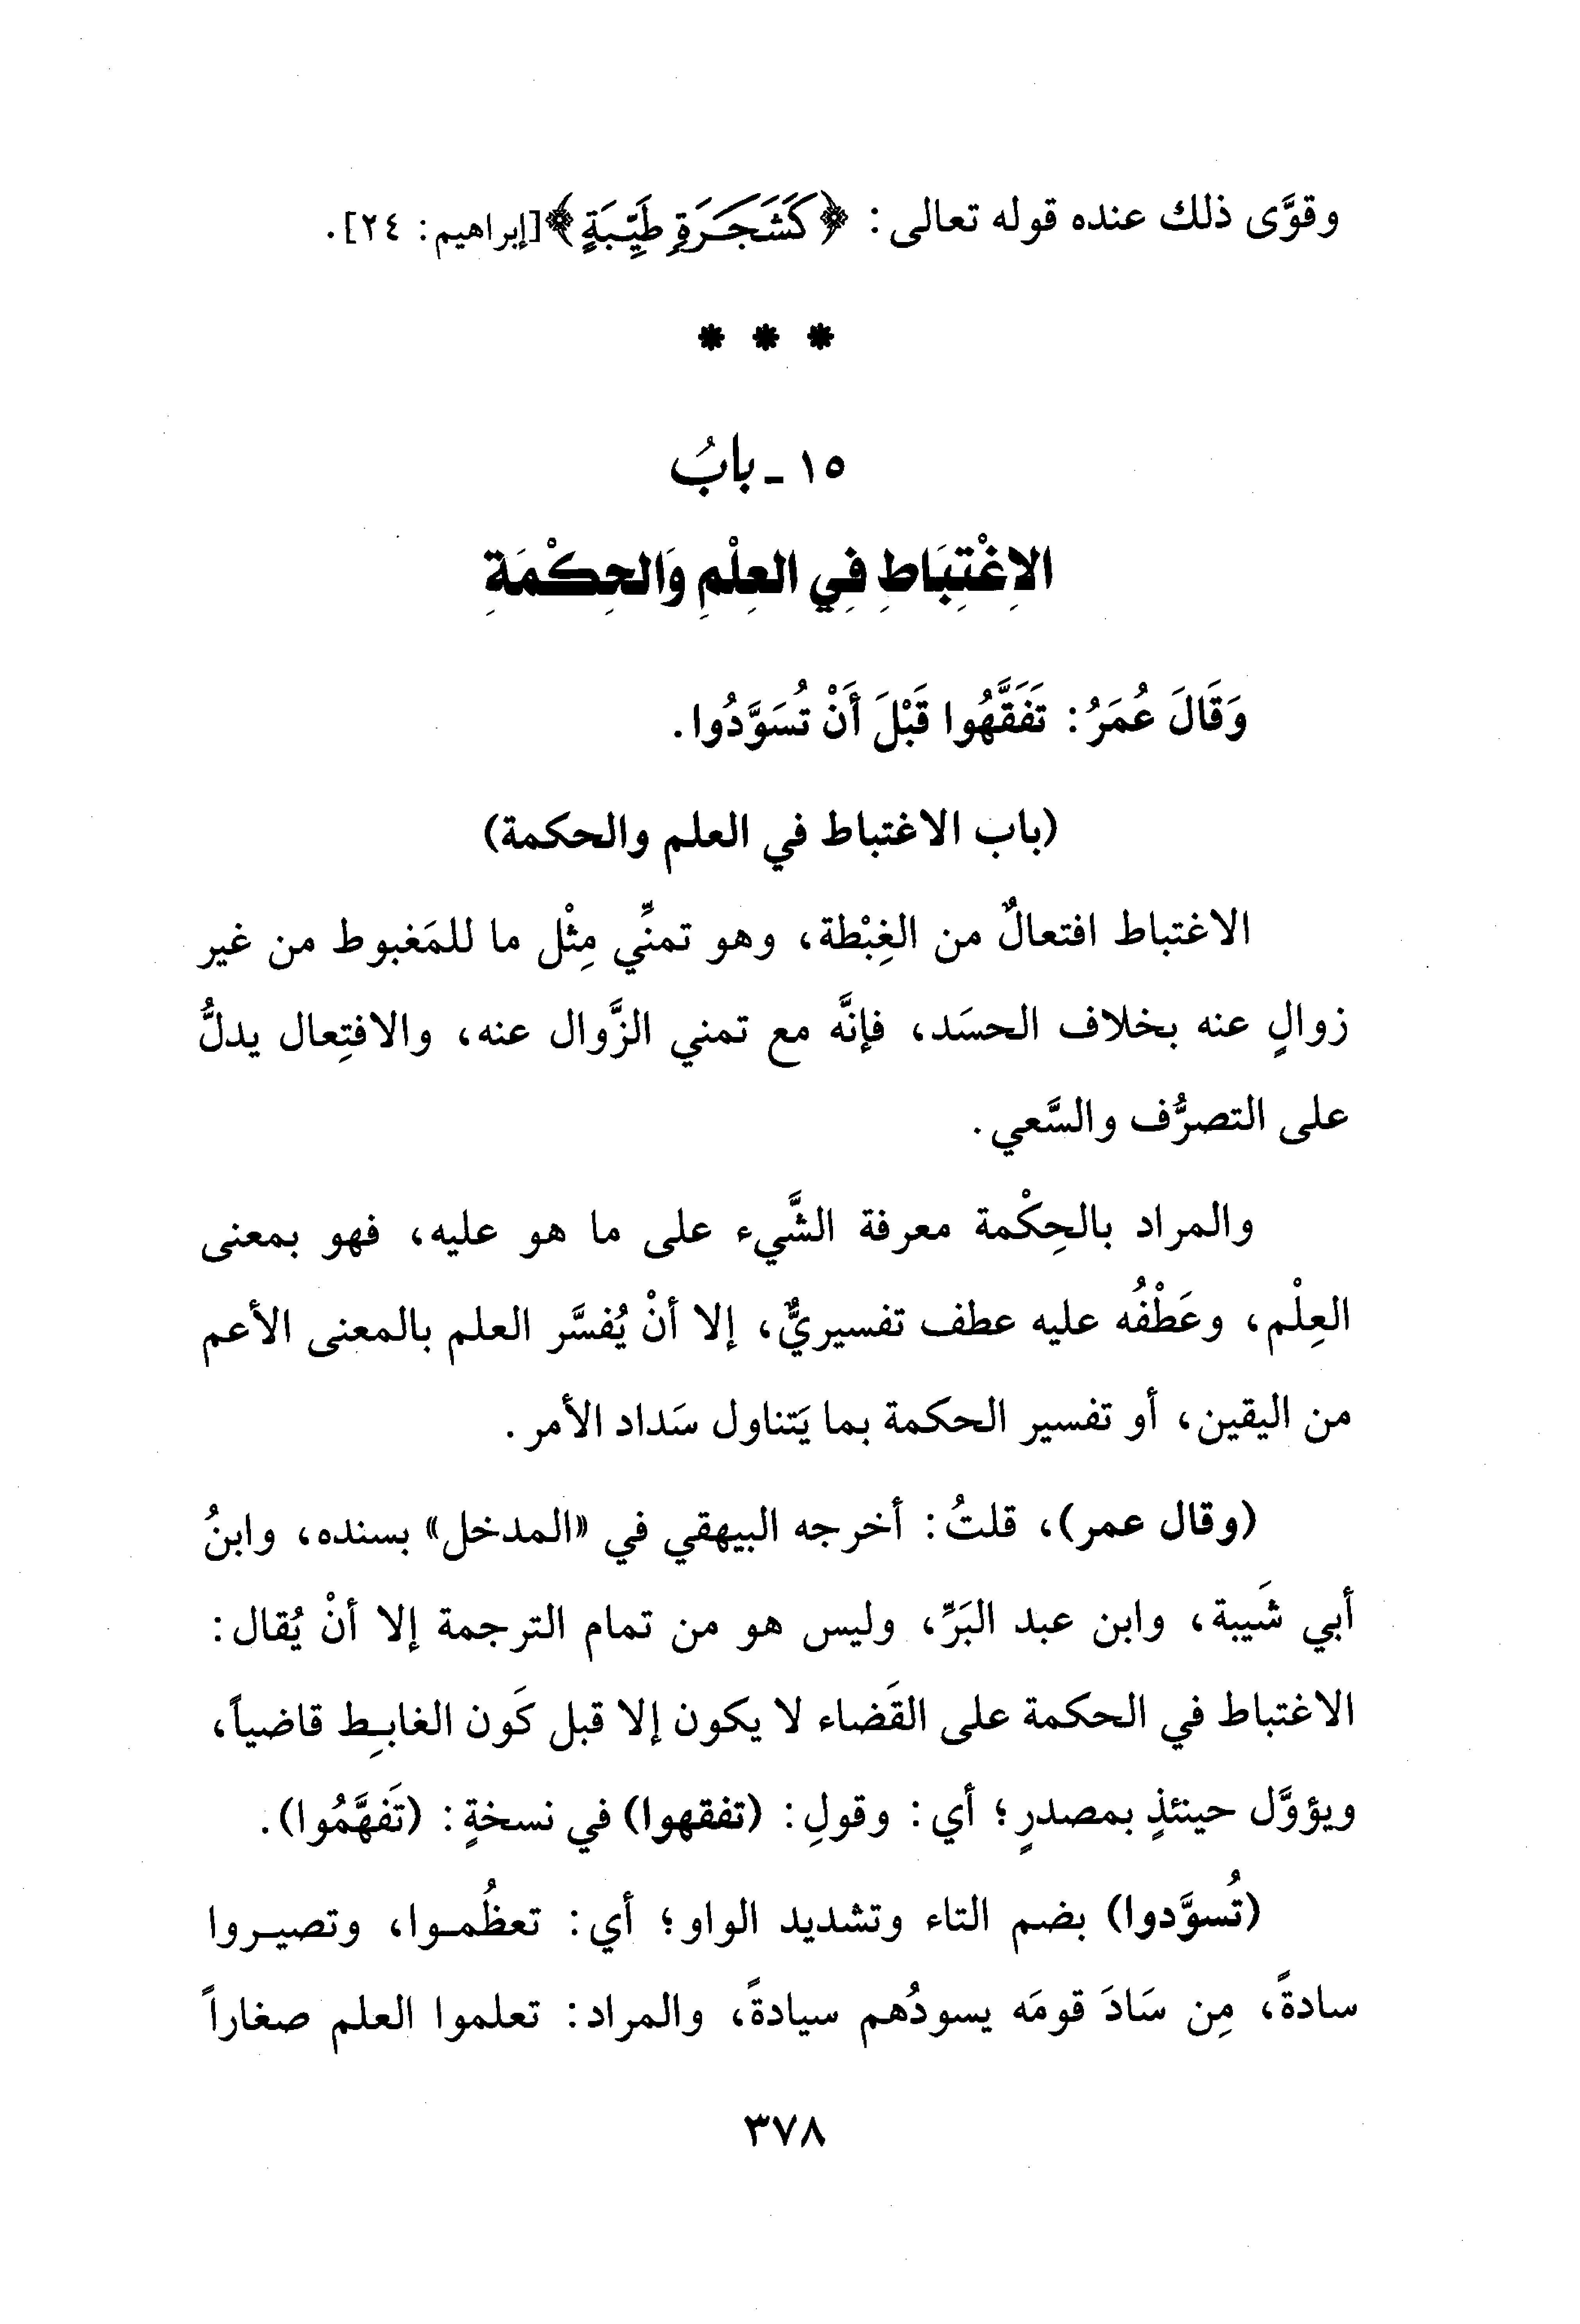 وقوَّى ذلك عنده قوله تعالى: ﴿كَشَجَرَةٍ طَيِّبَةٍ﴾[إبراهيم: ٢٤].
* * *
١٥ - بابُ
الاِغْتِبَاطِ فِي العِلْمِ وَالحِكْمَةِ
وَقَالَ عُمَرُ: تَفَقَّهُوا قَبْلَ أَنْ تُسَوَّدُوا.
(باب الاغتباط في العلم والحكمة)
الاغتباط افتعالٌ من الغِبْطة، وهو تمنِّي مِثْل ما للمَغبوط من غير
زوالٍ عنه بخلاف الحسَد، فإنَّه مع تمني الزَّوال عنه، والافتِعال يدلُّ
على التصرُّف والسَّعي.
والمراد بالحِكْمة معرفة الشَّيء على ما هو عليه، فهو بمعنى
العِلْم، وعَطْفُه عليه عطف تفسيريٌّ، إلا أنْ يُفسَّر العلم بالمعنى الأعم
من اليقين، أو تفسير الحكمة بما يَتناول سَداد الأمر.
(وقال عمر)، قلتُ: أخرجه البيهقي في «المدخل» بسنده، وابنُ
أبي شَيبة، وابن عبد البَرِّ، وليس هو من تمام الترجمة إلا أنْ يُقال:
الاغتباط في الحكمة على القَضاء لا يكون إلا قبل كَون الغابِط قاضياً،
ويؤوَّل حينئذٍ بمصدرٍ؛ أي: وقولِ: (تفقهوا) في نسخةٍ: (تَفهَّمُوا).
(تُسوَّدوا) بضم التاء وتشديد الواو؛ أي: تعظُموا، وتصيروا
سادةً، مِن سَادَ قومَه يسودُهم سيادةً، والمراد: تعلموا العلم صغاراً
٣٧٨